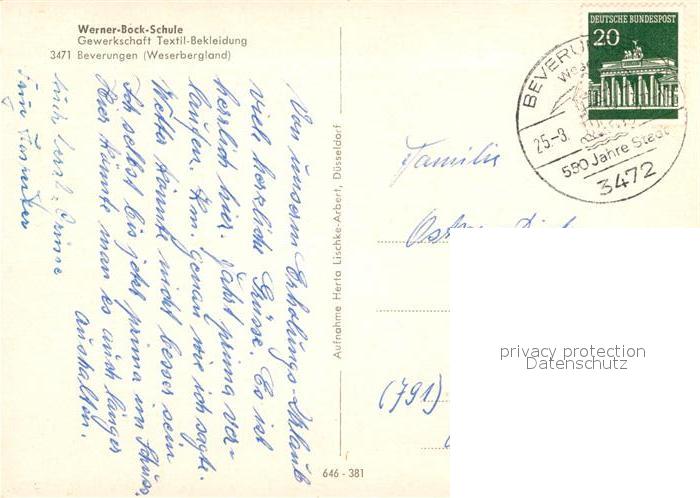 Werner-Bock-Schule
Gewerkschaft Textil-Bekleidung
3471 Beverungen (Weserbergland)
Von unserm Erholungs-Urlaub
viele herzliche Grüsse. Es ist
herrlich hier. Fahrt prima ver-
laufen. km. genau wie ich sagte.
Wetter könnte nicht besser sein
Ich selbst bis jetzt prima im Schuss.
Hier könnte man es auch länger
aushalten.
Aufnahme Herta Lischke-Arbert, Düsseldorf
646 - 381
DEUTSCHE BUNDESPOST
20
BEVERU
25.-8.
550 Jahre Stadt
3472
Familie
(791)
privacy protection
Datenschutz